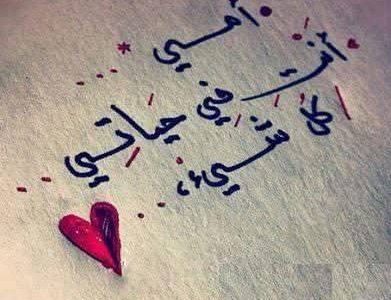 أمي
أنتِ في حياتي
كل شيء